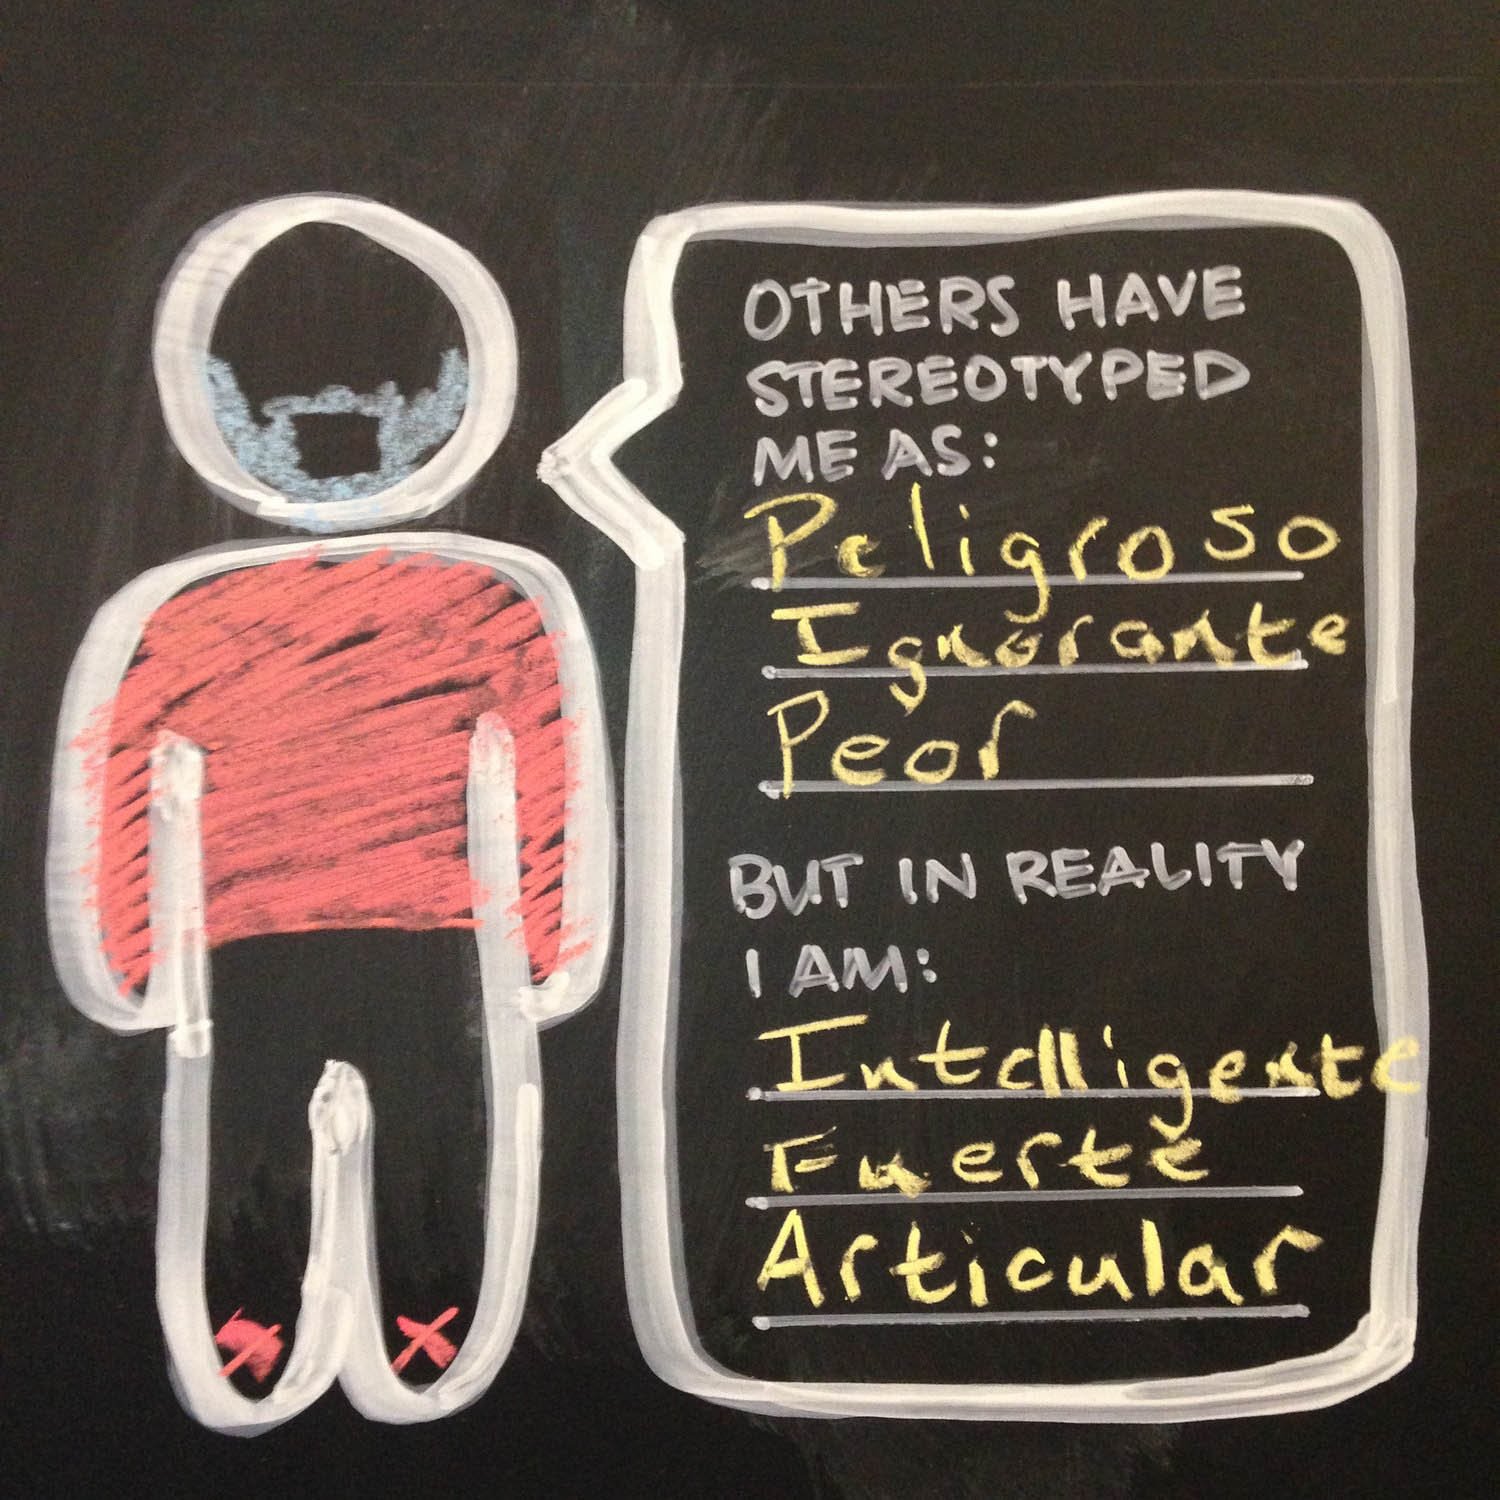 OTHERS HAVE
STEREOTYPED
ME AS:
Peligroso
Ignorante
Peor
BUT IN REALITY
I AM:
Intelligente
Fuerte
Articular